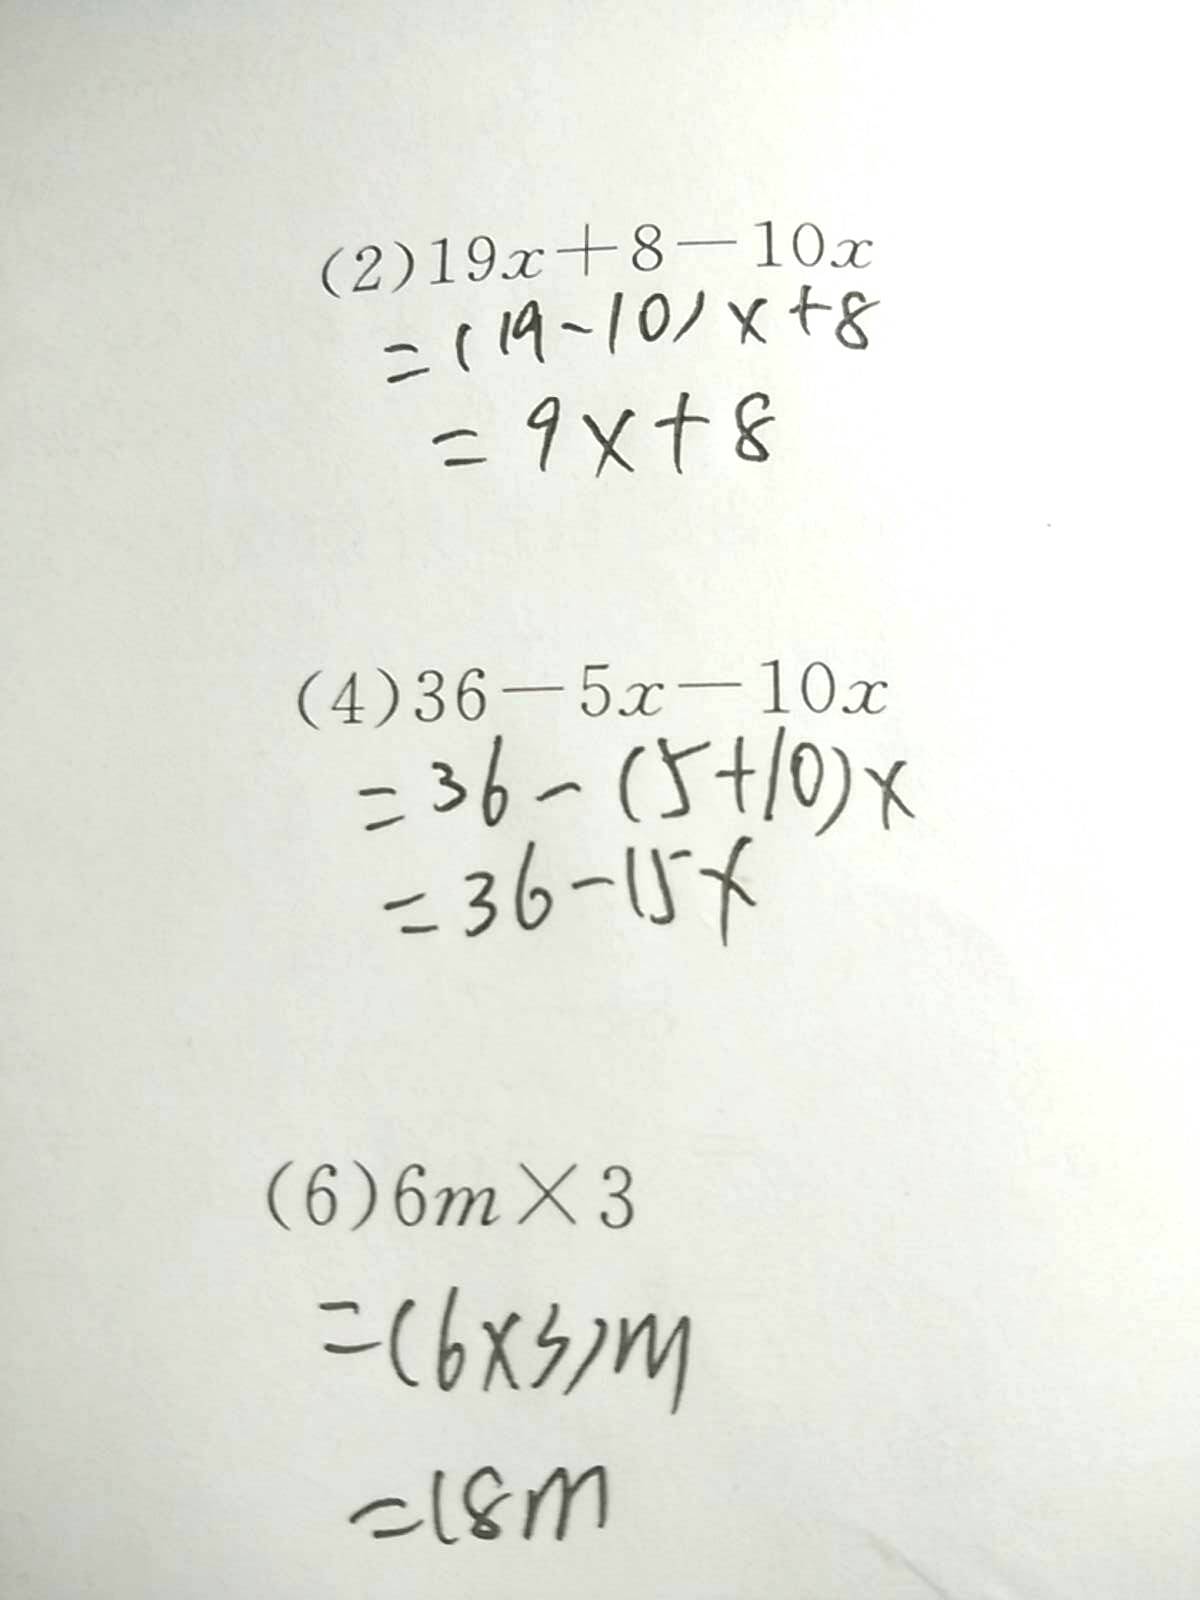 (2)19x+8-10x
=(19-10)x+8
=9x+8
(4)36-5x-10x
=36-(5+10)x
=36-15x
(6)6m×3
=(6×3)m
=18m